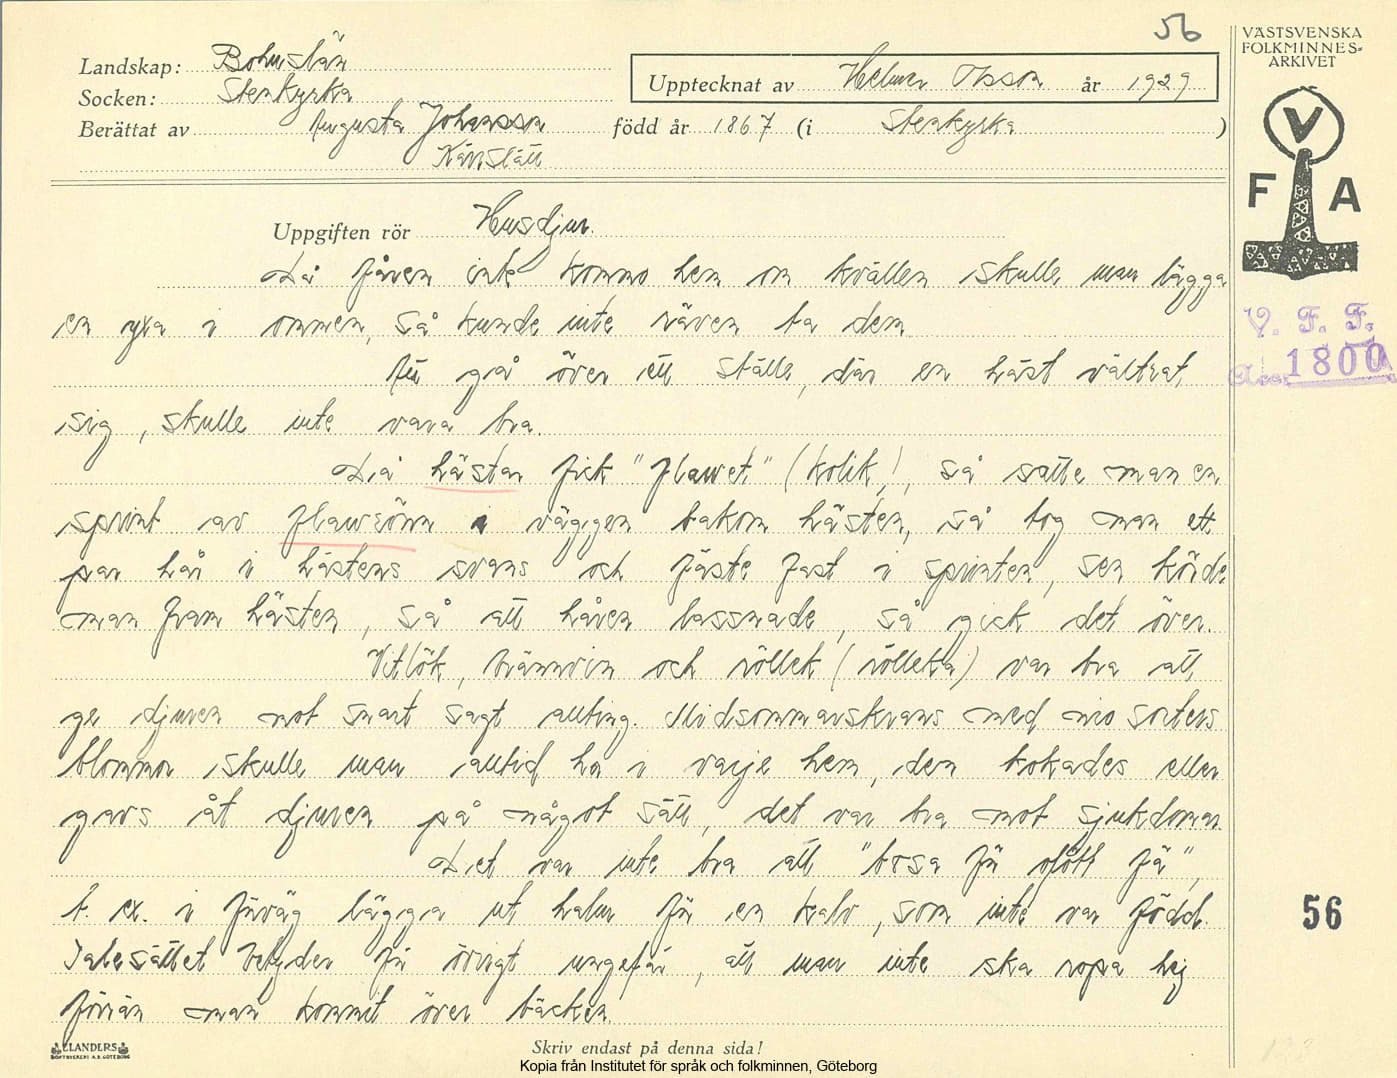 56
VÄSTSVENSKA
FOLKMINNES-
ARKIVET
Landskap: Bohuslän
Upptecknat av Helmer Olsson år 1929
Socken: Stenkyrka
Berättat av Augusta Johansson född år 1867 (i Stenkyrka )
Kårslätt
V
F A
Uppgiften rör Husdjur.
Då fåren inte kommo hem om kvällen skulle man lägga
en yxa i ommen, så kunde inte räven ta dem
Att gå över ett ställe, där en häst vältrat
sig, skulle inte vara bra.
Då hästar fick "flawet" (kolik), så satte man en
sprint av flawrönn i väggen bakom hästen, så tog man ett
par hår i hästens svans och fäste fast i sprinten, sen körde
man fram hästen, så att håren lossnade, så gick det över.
Vitlök, brännvin och röllek (rölleka) var bra att
ge djuren mot snart sagt allting. Midsommarskrans med nio sorters
blommor skulle man alltid ha i varje hem, den kokades eller
gavs åt djuren på något sätt, det var bra mot sjukdomar
Det var inte bra att "bosa för ofött fä",
t. ex. i förväg lägga ut halm för en kalv, som inte var född.
Talesättet betyder för övrigt ungefär, att man inte ska ropa hej
förrän man kommit över bäcken.
V. F. F.
Acc. 1800
56
ELANDERS
BOKTRYCKERI A.B. GÖTEBORG
Skriv endast på denna sida!
Kopia från Institutet för språk och folkminnen, Göteborg